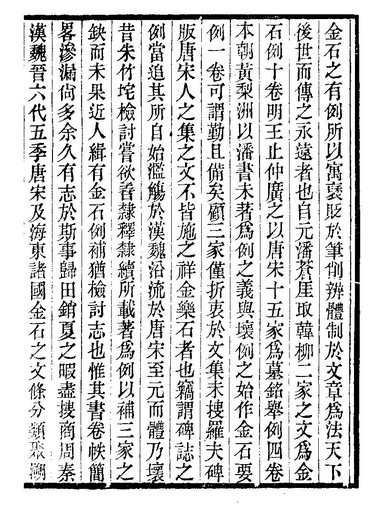 金石之有例所以寓褒貶於筆削辨體制於文章為法天下
後世而傳之永遠者也自元潘蒼厓取韓柳二家之文為金
石例十卷明王止仲廣之以唐宋十五家為墓銘舉例四卷
本朝黃梨洲以潘書未著為例之義與壞例之始作金石要
例一卷可謂勤且備矣顧三家僅折衷於文集未搜羅夫碑
版唐宋人之集之文不皆施之祥金樂石者也竊謂碑誌之
例當追其所自始濫觴於漢魏沿流於唐宋至元而體乃壞
昔朱竹垞檢討嘗欲舂隸釋隸續所載著為例以補三家之
缺而未果近人緝有金石例補猶檢討志也惟其書卷帙簡
畧滲漏尙多余久有志於斯事歸田錧夏之暇盡搜商周秦
漢魏晉六代五季唐宋及海東諸國金石之文條分類聚溯